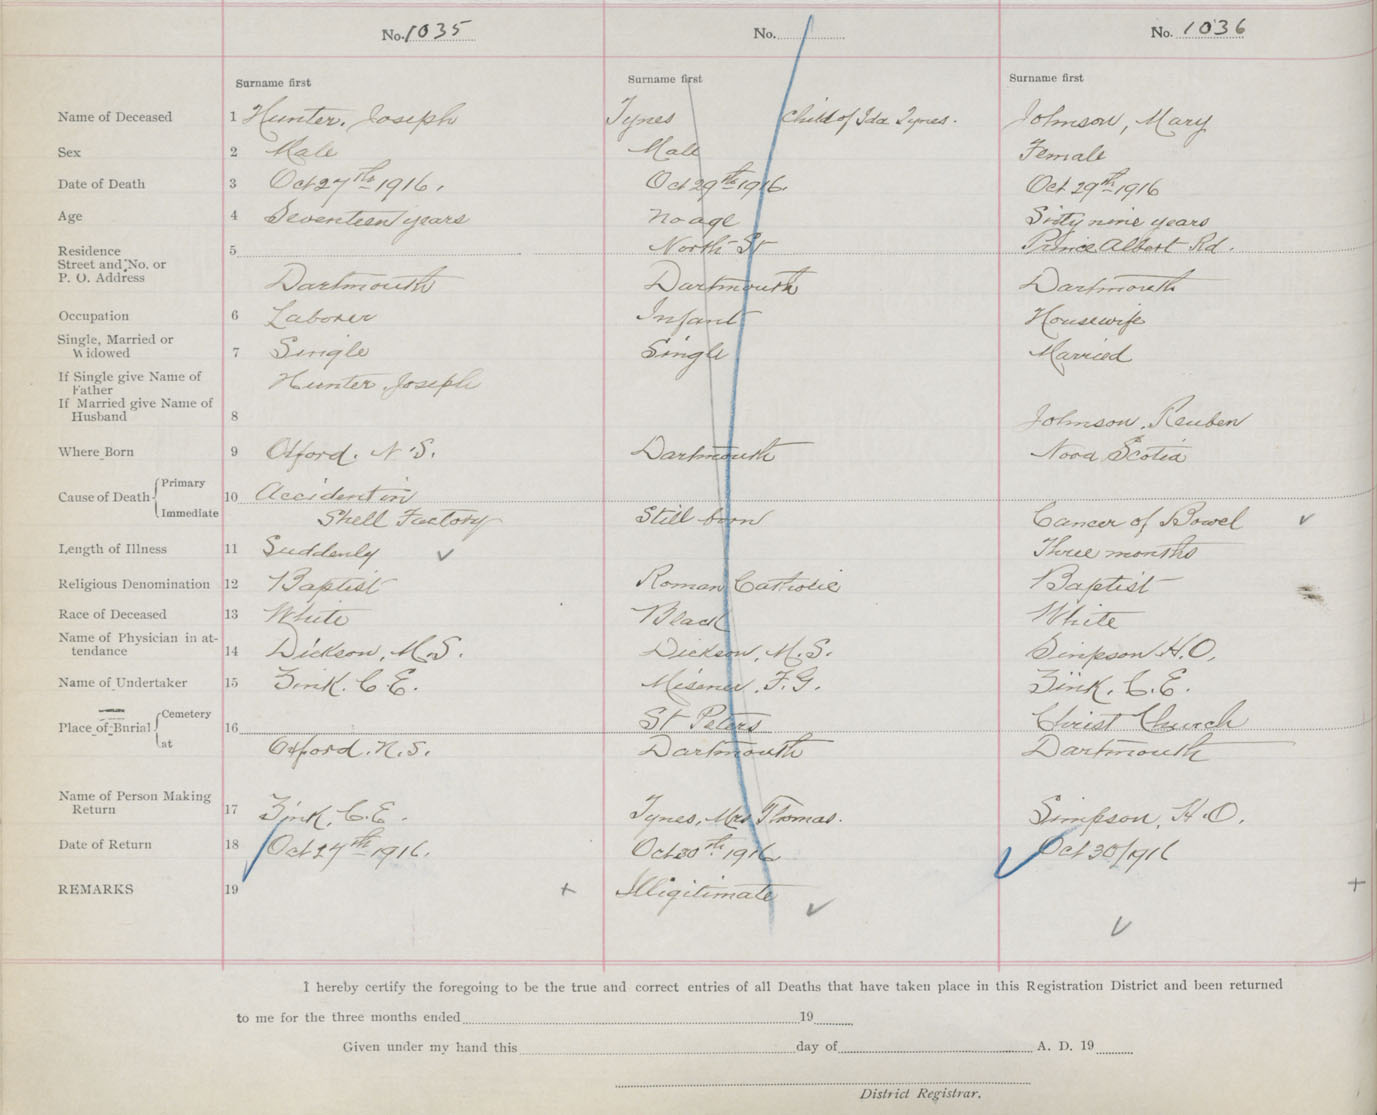 No. 1035 No. No. 1036
Surname first Surname first Surname first
Name of Deceased 1 Hunter, Joseph Tynes Child of Ida Tynes. Johnson, Mary
Sex 2 Male Male Female
Date of Death 3 Oct 27th 1916. Oct 29th 1916. Oct 29th 1916
Age 4 Seventeen years No age Sixty nine years
Residence 5 North St Prince Albert Rd.
Street and No. or
P. O. Address Dartmouth Dartmouth Dartmouth
Occupation 6 Laborer Infant Housewife
Single, Married or
Widowed 7 Single Single Married
If Single give Name of
Father Hunter, Joseph
If Married give Name of
Husband 8 Johnson, Reuben
Where Born 9 Oxford. N.S. Dartmouth Nova Scotia
Cause of Death Primary 10 Accident in
Immediate Shell Factory Still born Cancer of Bowel
Length of Illness 11 Suddenly Three months
Religious Denomination 12 Baptist Roman Catholic Baptist
Race of Deceased 13 White Black White
Name of Physician in at-
tendance 14 Dickson, M.S. Dickson, M.S. Simpson H.O.
Name of Undertaker 15 Zink. C.E. Misener, F.G. Zink, C.E.
Place of Burial Cemetery 16 St Peters Christ Church
at Oxford. N.S. Dartmouth Dartmouth
Name of Person Making
Return 17 Zink, C.E. Tynes, Mrs Thomas. Simpson, H.O.
Date of Return 18 Oct 27th 1916. Oct 30th 1916 Oct 30/1916
REMARKS 19 Illigitimate
I hereby certify the foregoing to be the true and correct entries of all Deaths that have taken place in this Registration District and been returned
to me for the three months ended 19
Given under my hand this day of A. D. 19
District Registrar.